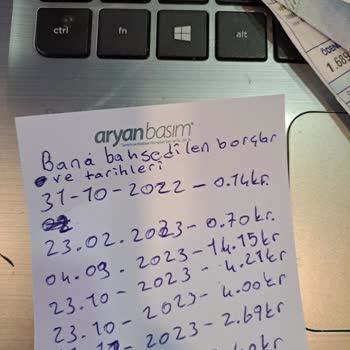 ctrl
fn
alt
ÖDEN
1.689
aryanbasım
Bana bahsedilen borçlar
ve tarihleri
31-10-2022-0.14kr.
23.02.2023-0.70kr.
04.09.2023-14.15kr
23.10-2023-4.21kr
23.10-2023-4.00kr
2023-2.69kr